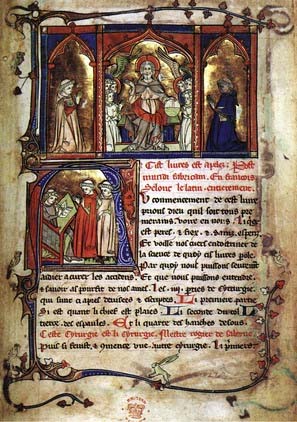 Cest livres est apelez Post
mundi fabricam. En francois
Selonc le latin. entierement.
U commencement de cest livre
prions dieu qui soit tous pre
merains. voire en nons. Li qex
est peres. & fiex. & sains. espers.
Et voille nos cuers endoctriner de
la science de quoy cis livres pole.
Par quoy nous puissons seurement
aidier a curer les accidens. Et que nous puissons entendre
& savoir au pourfit de nos ames. Les .iiij. pties de cyrurgie.
qui sunt ci apres devisees & escriptes. Li premiere partie
Si est quant li chief est plaies. Li seconde du col. Li
tierce. des espaules. Et li quarte des hanches desous.
Ceste cyrurgie est li cyrurgie. Mestre rogier de salerne.
Puis si fenist. & commence une autre cyrurgie. Li premiers